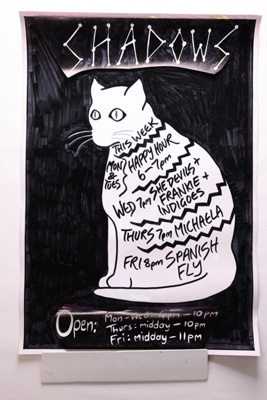 SHADOWS
THIS WEEK
MON & TUES } HAPPY HOUR
6-7pm
WED 7pm SHEDEVILS +
FRANKIE +
INDIGOES
THURS 7pm MICHAELA
FRI 8pm SPANISH
FLY
Open: Mon-Wed: 4pm-10pm
Thurs: midday-10pm
Fri: midday-11pm